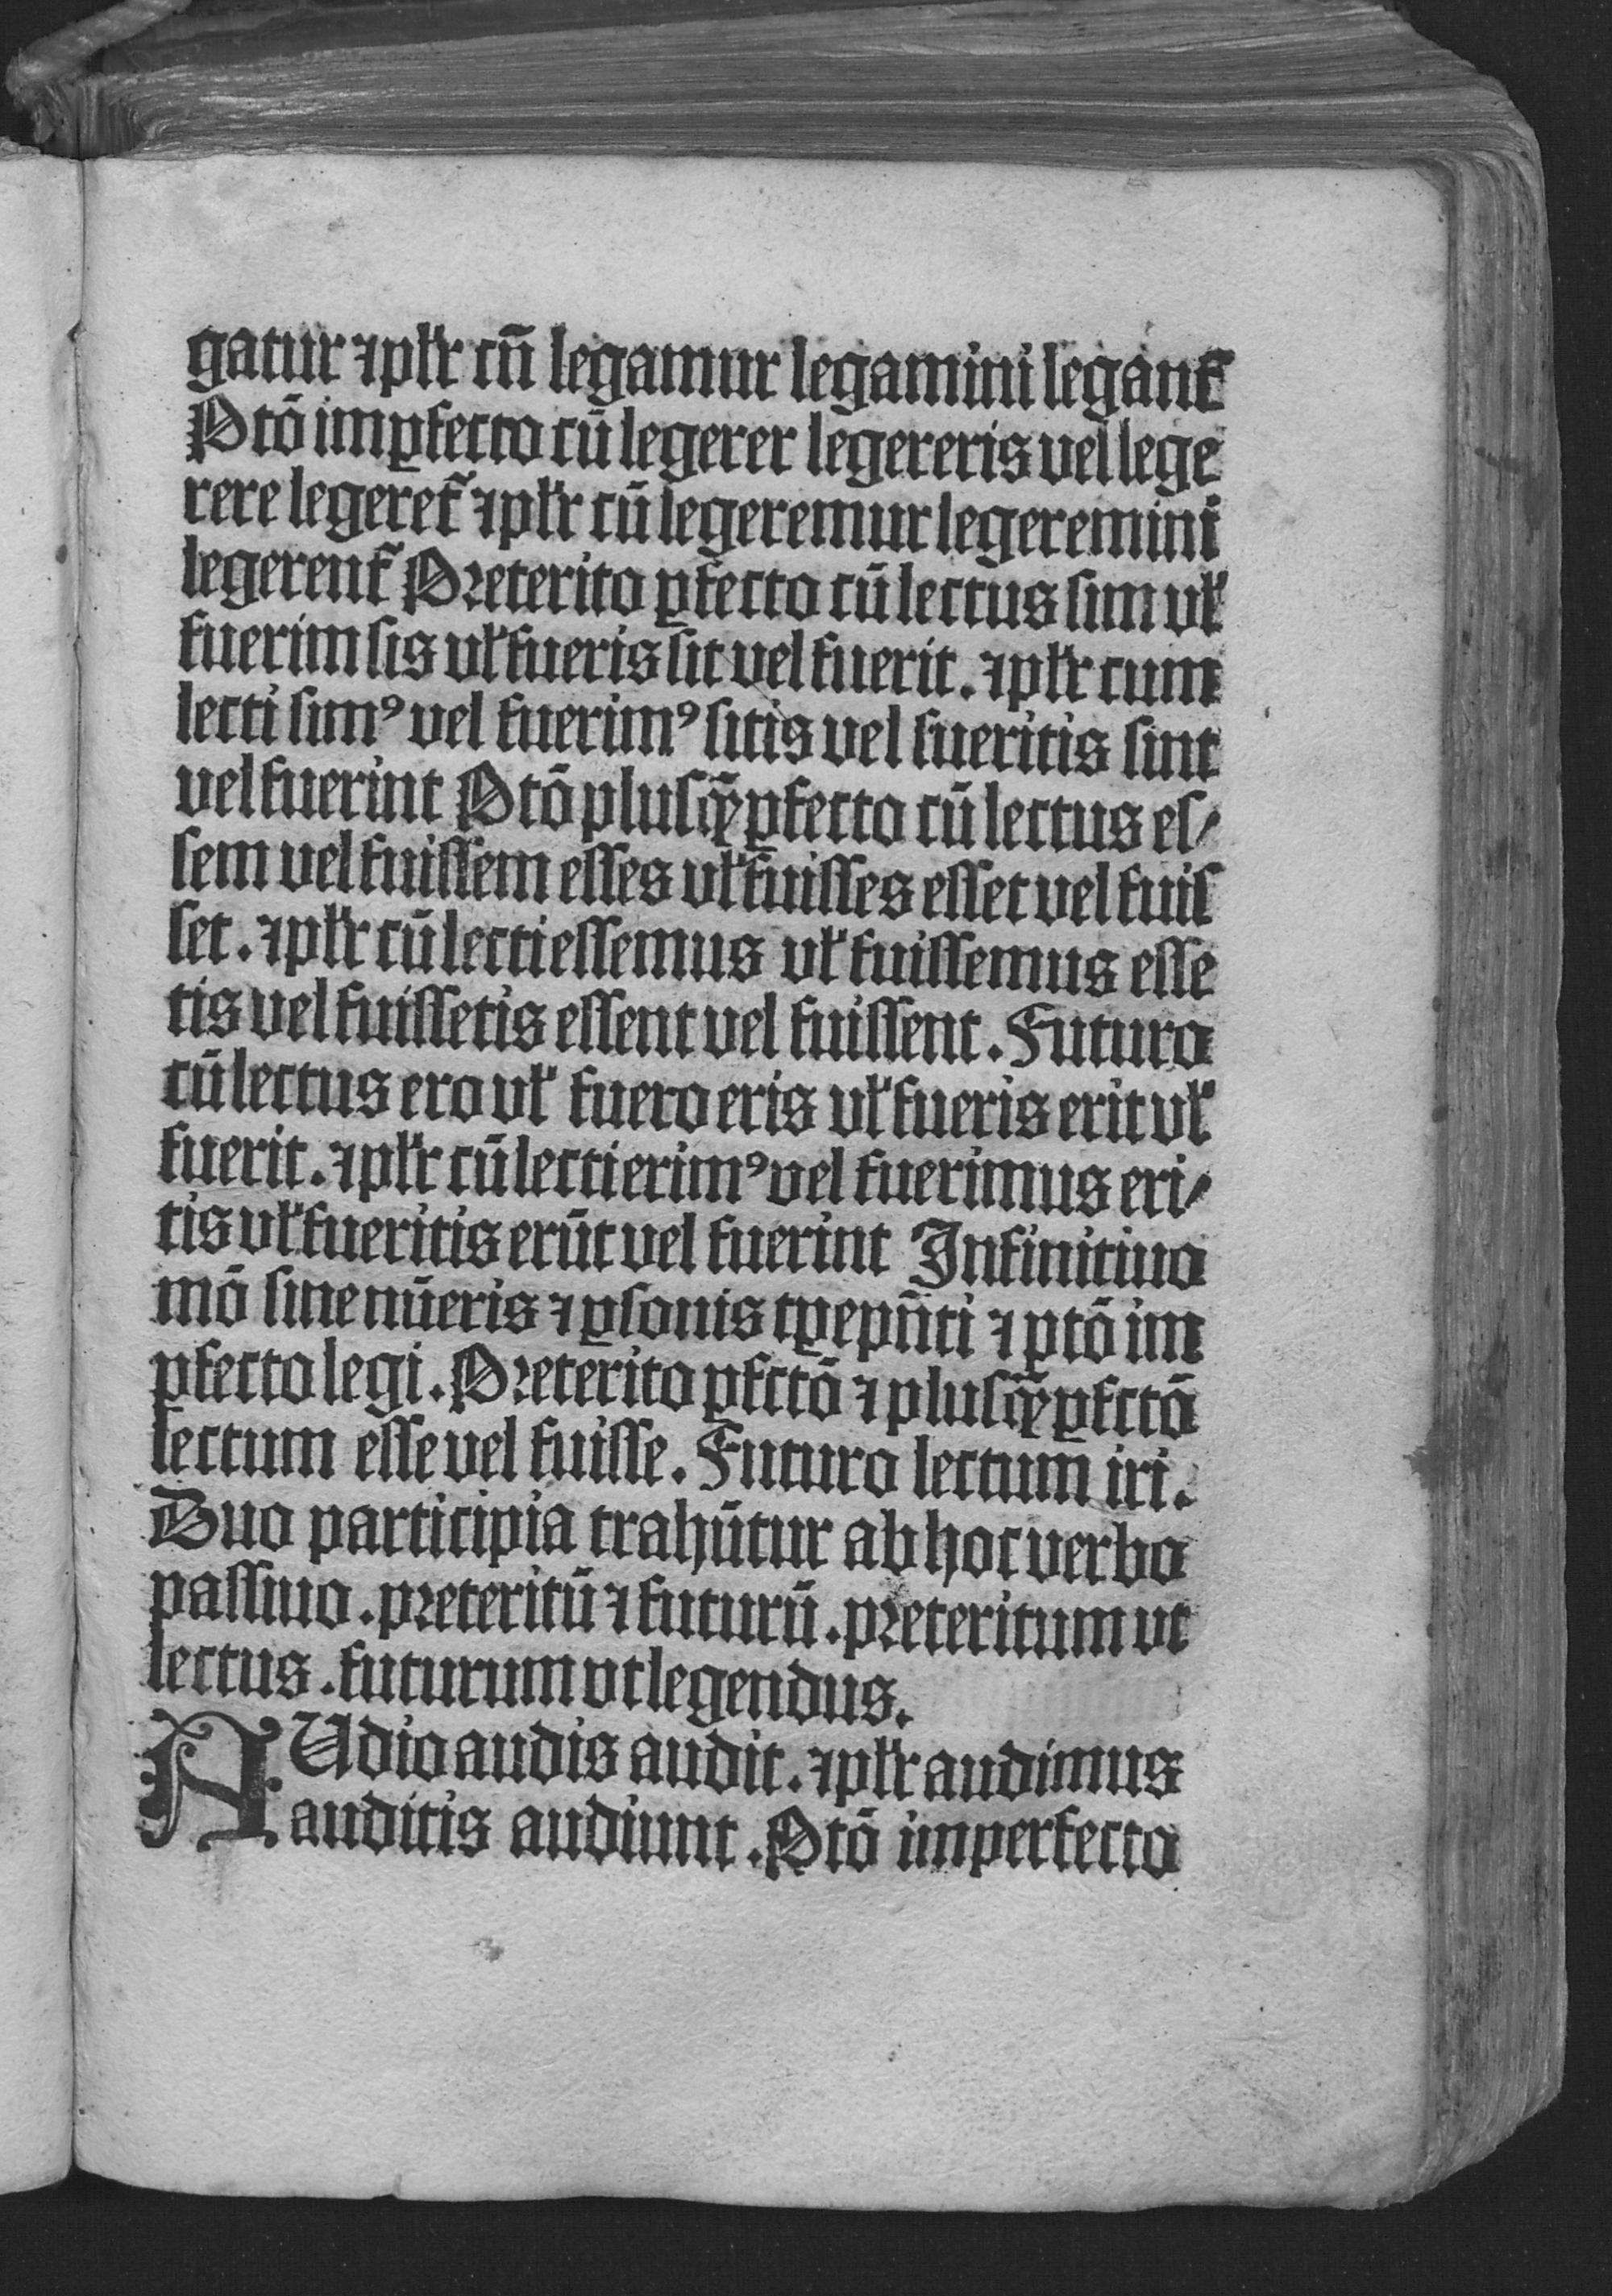 gatur ⁊ pl̄r cū legamur legamini legant᷑
Ptō imꝑfecto cū legerer legereris vel lege
rere legeret᷑ ⁊ pl̄r cū legeremur legeremini
legerent᷑ Preterito ꝑfecto cū lectus sim vl̄
fuerim sis vl̄ fueris sit vel fuerit. ⁊ pl̄r cum
lecti simꝰ vel fuerimꝰ sitis vel fueritis sint
vel fuerint Ptō plusq̄ꝑfecto cū lectus es⸗
sem vel fuissem esses vl̄ fuisses esset vel fuis
set. ⁊ pl̄r cū lecti essemus vl̄ fuissemus esse
tis vel fuissetis essent vel fuissent. Futuro
cū lectus ero vl̄ fuero eris vl̄ fueris erit vl̄
fuerit. ⁊ pl̄r cū lecti erimꝰ vel fuerimus eri⸗
tis vl̄ fueritis erūt vel fuerint Infinitiuo
mō sine nūeris ⁊ ꝑsonis tꝑe pn̄ti ⁊ ptō im
ꝑfecto legi. Preterito ꝑfctō ⁊ plusq̄ꝑfctō
lectum esse vel fuisse. Futuro lectum iri.
Duo participia trahūtur ab hoc verbo
passiuo. preteritū ⁊ futurū. preteritum vt
lectus. futurum vt legendus.
AUdio audis audit. ⁊ pl̄r audimus
auditis audiunt. Ptō imperfecto